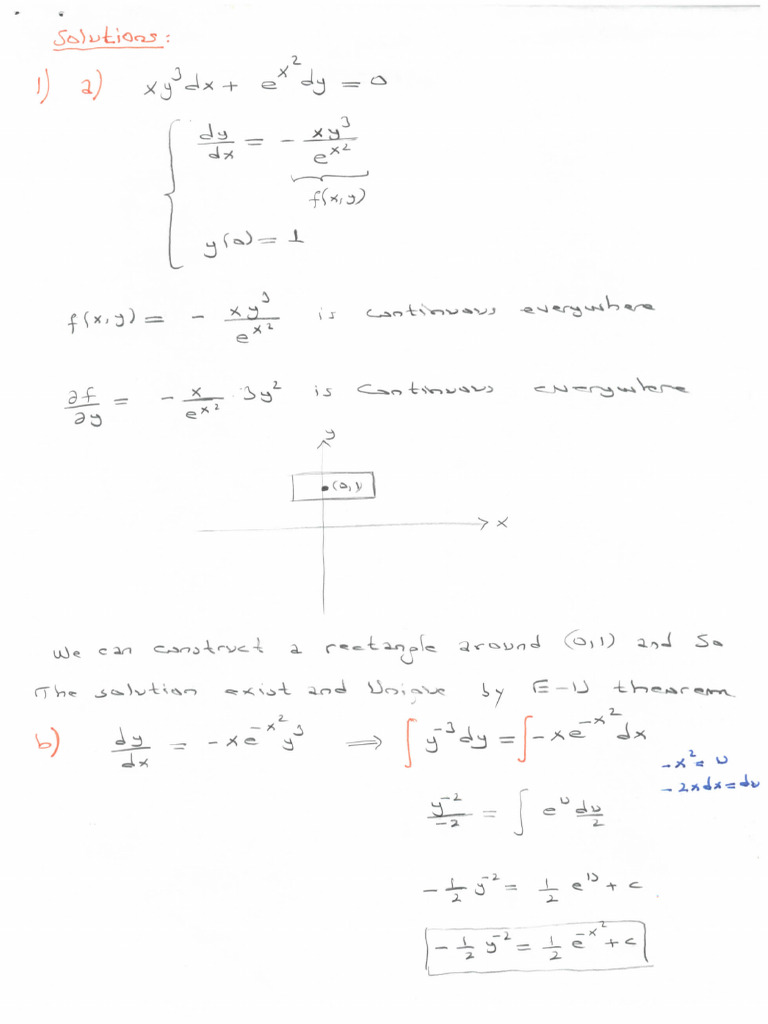 Solutions:
1) a) xy³dx + e^{x²}dy = 0
dy/dx = - xy³/e^{x²}
f(x,y)
y(0) = 1
f(x,y) = - xy³/e^{x²} is continuous everywhere
∂f/∂y = - x/e^{x²} · 3y² is continuous everywhere
y
(0,1)
x
We can construct a rectangle around (0,1) and so
The solution exist and Unique by E-U theorem
b) dy/dx = -xe^{-x²}y³ ⟹ ∫ y⁻³dy = ∫ -xe^{-x²}dx
-x² = u
-2xdx = du
y⁻²/-2 = ∫ e^u du/2
-1/2 y⁻² = 1/2 e^u + c
-1/2 y⁻² = 1/2 e^{-x²} + c